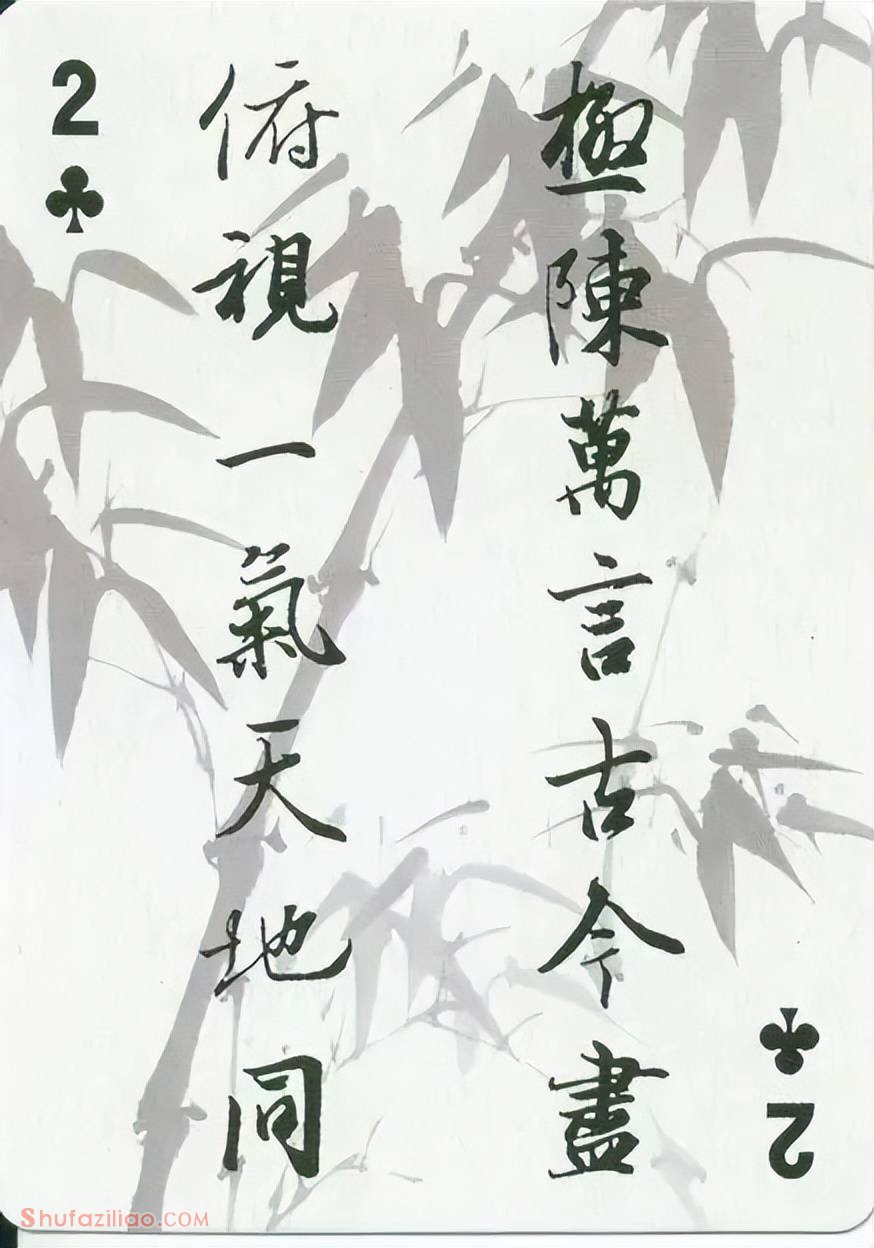 2
極陳萬言古今盡
俯視一氣天地同
2
Shufaziliao.COM